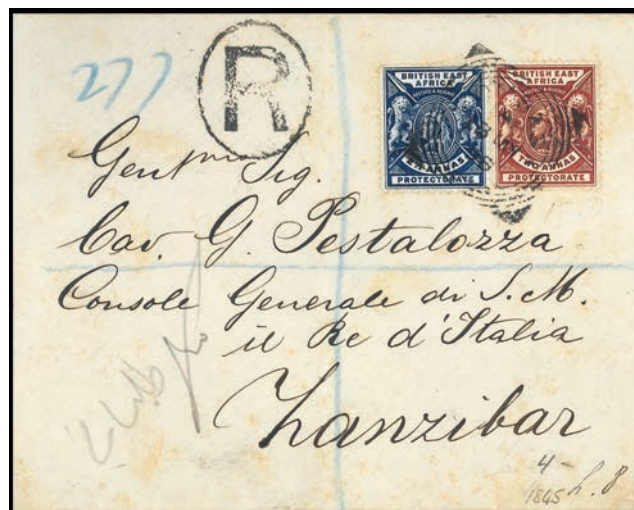 277
R
BRITISH EAST AFRICA
PROTECTORATE
BRITISH EAST AFRICA
TWO ANNAS
PROTECTORATE
Gentmo Sig.
Cav. G. Pestalozza
Console Generale di S. M.
il Re d'Italia
Zanzibar
4-
1845 h. 8